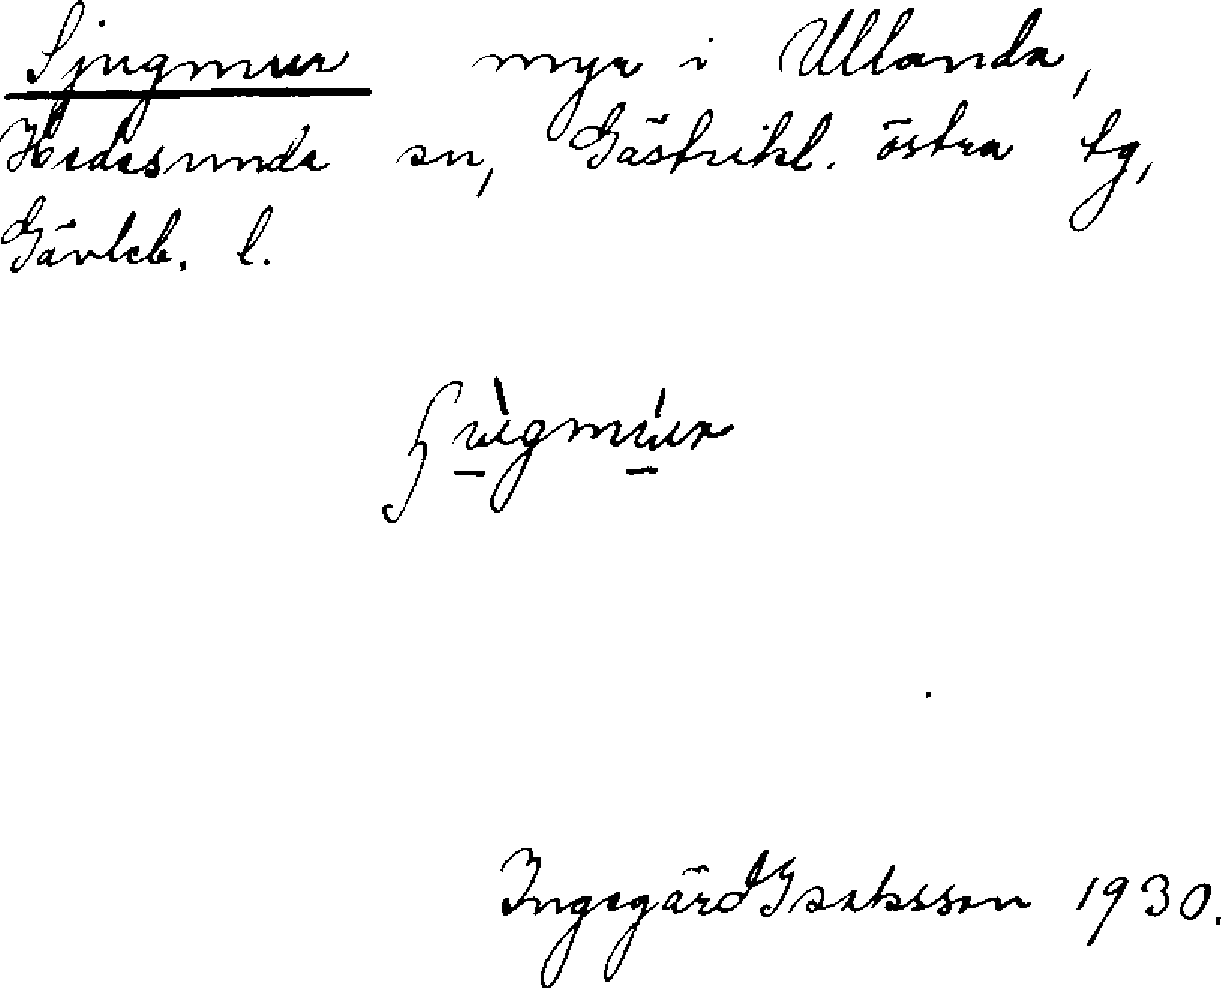 Sjugmur myr i Ullanda,
Hedesunda sn, Gästrikl. östra tg,
Gävleb. l.
ʃùgmúur
Ingegärd Isaksson 1930.